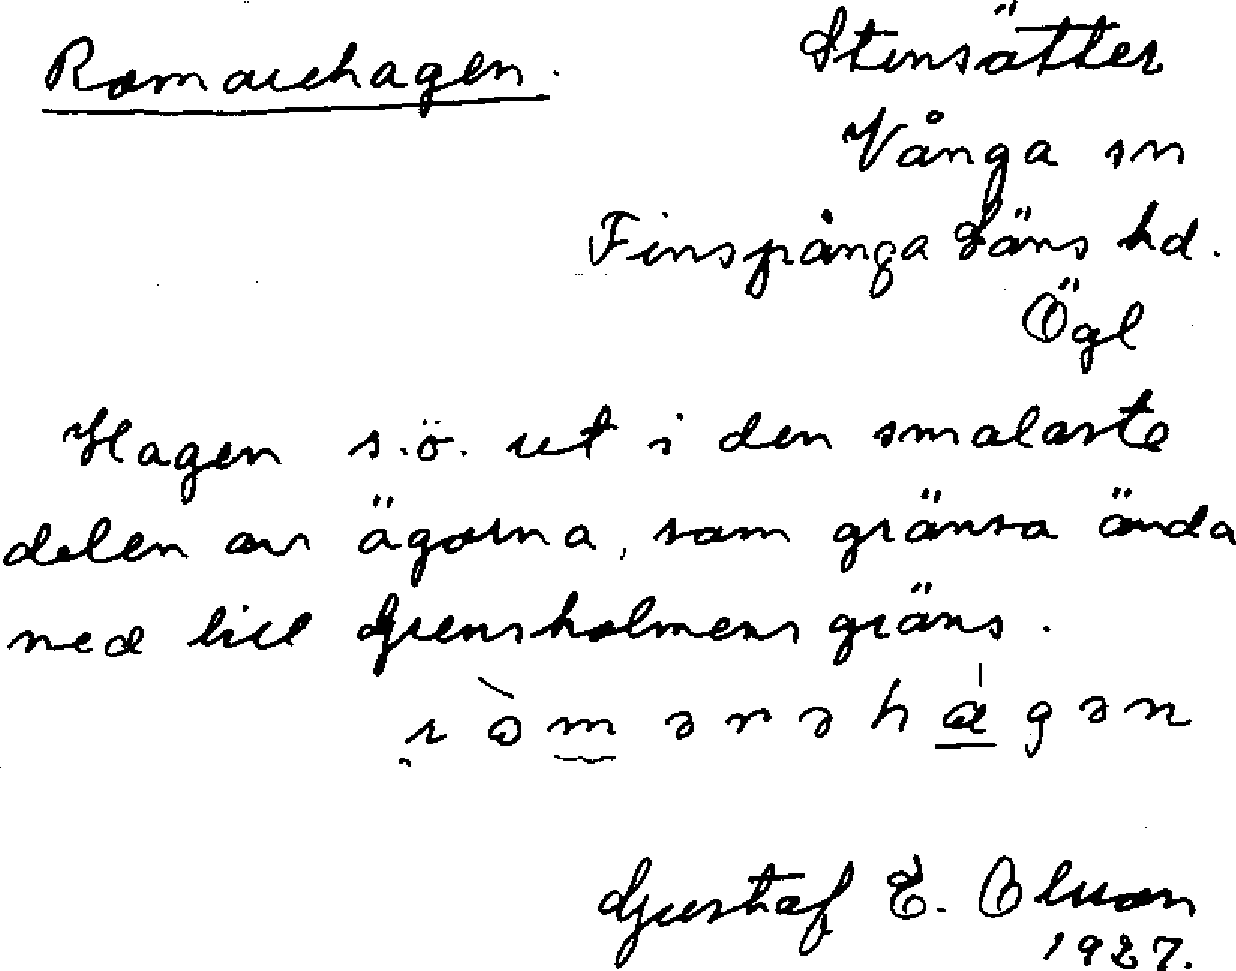 Romarehagen.
Stensätter
Vånga sn
Finspånga läns hd.
Ögl
Hagen s.ö. ut i den smalaste
delen av ägorna, som gränsa ända
ned till Grensholmens gräns.
Gustaf E. Olsson
1927.